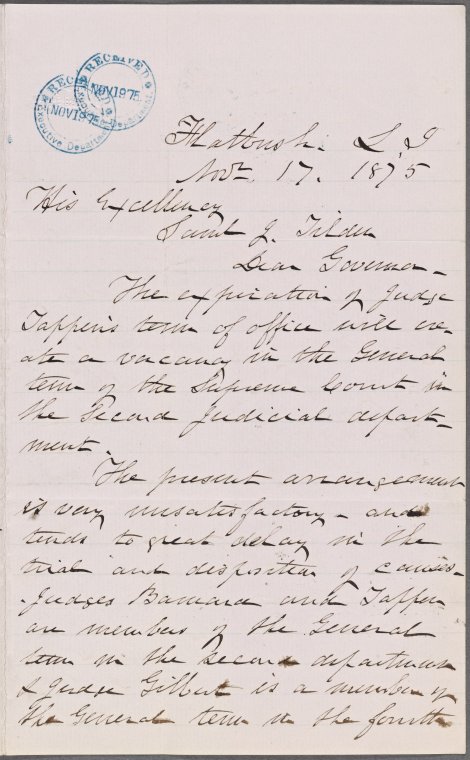 RECEIVED
NOV 1875
Executive Department
RECEIVED
NOV 1875
Flatbush. L I
Novr 17. 1875
His Excellency
Saml J. Tilden
Dear Governor-
The expiration of Judge
Tappen's term of office will cre-
ate a vacancy in the General
term of the Supreme Court in
the Second Judicial depart-
ment.
The present arrangement
is very unsatisfactory - and
tends to great delay in the
trial and disposition of causes-
Judges Barnard and Tappen
are members of the General
term in the second department
& Judge Gilbert is a member of
the General term in the fourth